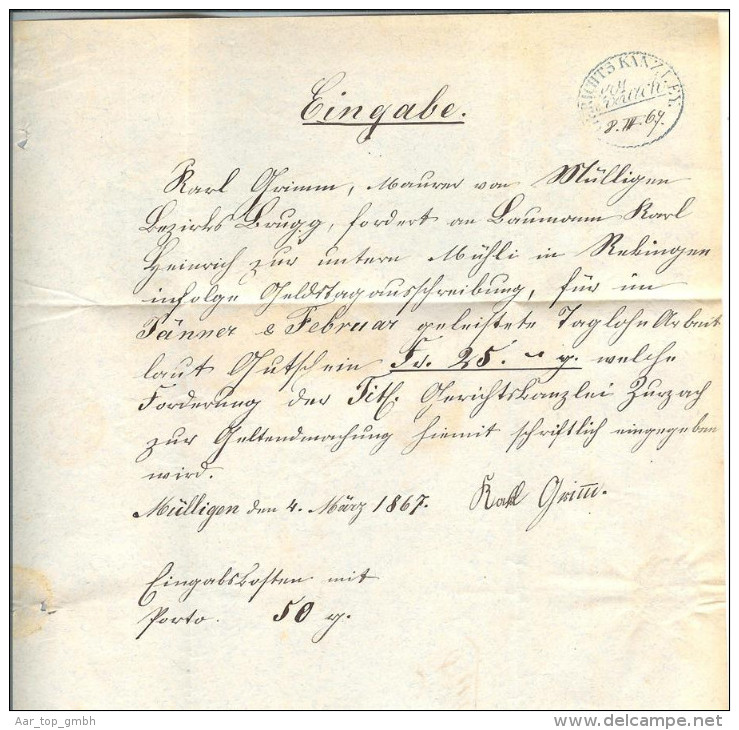 Eingabe.
GERICHTS KANZLEY
Zurzach
8. III. 67.
Karl Grimm, Maurer von Mülligen
Bezirks Brugg, fordert an Baumann Karl
Heinrich zur untern Mühli in Rekingen
infolge Geldstagausschreibung, für im
Jänner & Februar geleistete Taglohn Arbeit
laut Gutschein Fr. 25. - welche
Forderung der Titl. Gerichtskanzlei Zurzach
zur Geltendmachung hiemit schriftlich eingegeben
wird.
Mülligen den 4. März 1867. Karl Grimm.
Eingabskosten mit
Porto. 50
Aar_top_gmbh
delcampe.net